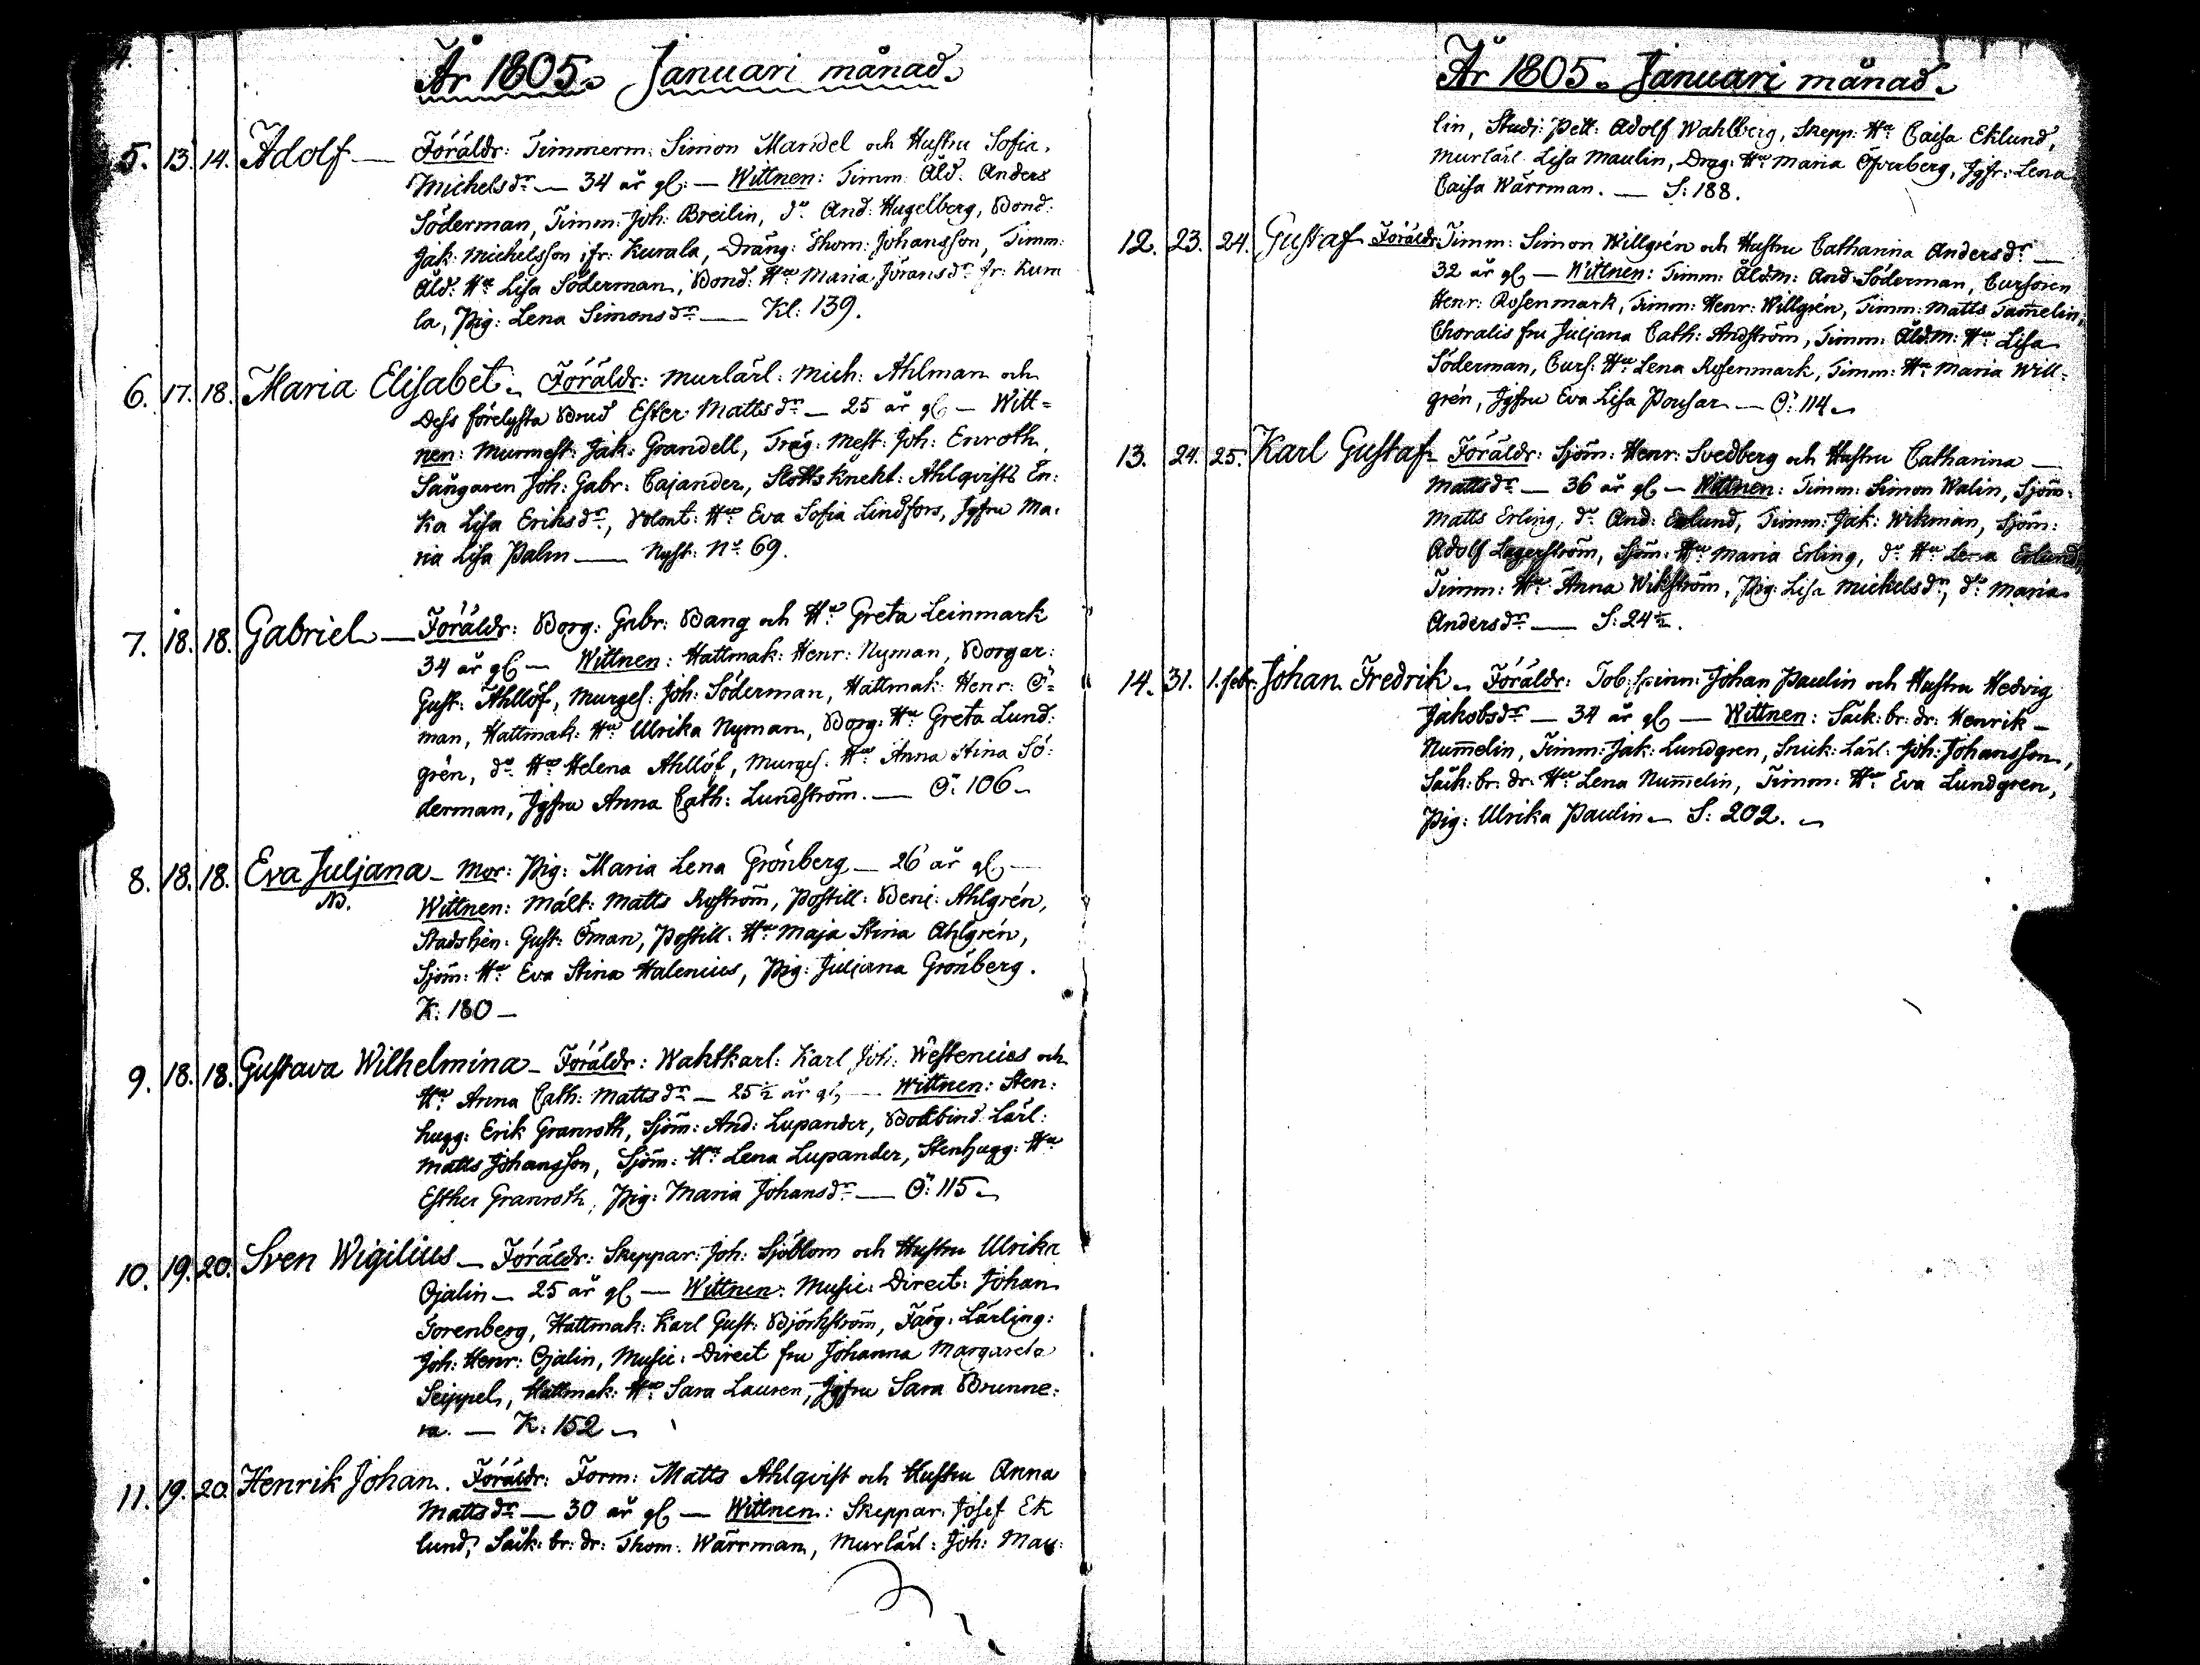 4.
År 1805. Januari månad.
5. 13. 14. Adolf — Föräldr: Timmerm: Simon Mandel och Hustru Sofia
Michelsdr — 34 år gl: — Wittnen: Timm: Åld: Anders
Söderman, Timm: Joh: Breilin, do And: Hugelberg, Bond:
Jak: Michelsson ifr: Kurala, Dräng: Thom: Johansson, Timm:
Åld: Hu Lisa Söderman, Bond: Hu Maria Jöransdr fr: Kura
la, Pig: Lena Simonsdr — Kl: 139.
6. 17. 18. Maria Elisabet. Föräldr: Murlärl: Mich: Ahlman och
Dess förelysta Brud Ester Mattsdr — 25 år gl — Witt=
nen: Murmest: Jak: Grandell, Träg: Mest: Joh: Enroth,
Sångaren Joh: Gabr: Cajander, Slotts Knekt: Ahlqvists En:
ka Lisa Eriksdr, Volont: Hu Eva Sofia Lindfors, Jgfru Ma:
ria Lisa Palm — Nyst: No 69.
7. 18. 18. Gabriel — Föräldr: Borg: Gabr: Bang och Hu Greta Leinmark
34 år gl — Wittnen: Hattmak: Henr: Nyman, Borgar:
Gust: Ahllöf, Murges: Joh: Söderman, Hattmak: Henr: Ö=
man, Hattmak: Hu Ulrika Nyman, Borg: Hu Greta Lund:
grén, do Hu Helena Ahllöf, Murges: Hu Anna Stina Sö:
derman, Jgfru Anna Cath: Lundström. — Ö: 106 —
8. 18. 18. Eva Juljana — Mor: Pig: Maria Lena Grönberg — 26 år gl —
NB. Wittnen: Mält: Matts Nyström, Postill: Benj: Ahlgrén,
Stadstjen: Gust: Öman, Postill: Hu Maja Stina Ahlgrén,
Sjöm: Hu Eva Stina Halenius, Pig: Juljana Grönberg.
K: 180 —
9. 18. 18. Gustava Wilhelmina — Föräldr: Waktkarl: Karl Joh: Westenius och
Hu Anna Cath: Mattsdr — 25 1/2 år gl, — Wittnen: Sten:
hugg: Erik Granroth, Sjöm: And: Lupander, Bokbind: Lärl:
Matts Johansson, Sjöm: Hu Lena Lupander, Stenhugg: Hu
Esther Granroth, Pig: Maria Johansdr — Ö: 115 —
10. 19. 20. Sven Wigilius — Föräldr: Skeppar: Joh: Sjöblom och Hustru Ulrika
Ojalin — 25 år gl — Wittnen: Music: Direct: Johan
Torenberg, Hattmak: Karl Gust: Björkström, Färg: Lärling:
Joh: Henr: Ojalin, Music: Direct fru Johanna Margareta
Seippel, Hattmak: Hu Sara Lauren, Jgfru Sara Brunne:
ra. — K: 152 —
11. 19. 20. Henrik Johan. Föräldr: Form: Matts Ahlqvist och Hustru Anna
Mattsdr — 30 år gl — Wittnen: Skeppar: Josef Ek
lund, Säck: br: dr: Thom: Wärrman, Murlärl: Joh: Mau:
År 1805. Januari månad.
lin, Studi: Pett: Adolf Wahlberg, Skepp: Hu Caisa Eklund,
Murlärl: Lisa Maulin, Drag: Hu Maria Öfverberg, Jgfr: Lena
Caisa Wärrman. — S: 188.
12. 23. 24. Gustaf Föräldr: Timm: Simon Willgrén och Hustru Catharina Andersdr —
32 år gl — Wittnen: Timm: Åldm: And: Söderman, Cursoren
Henr: Rosenmark, Timm: Henr: Willgrén, Timm: Matts Tam̄elin,
Choralis fru Juljana Cath: Andström, Timm: Åldm: Hu Lisa
Söderman, Curs: Hu Lena Rosenmark, Timm: Hu Maria Will=
grén, Jgfru Eva Lisa Pousar — Ö: 114 —
13. 24. 25. Karl Gustaf — Föräldr: Sjöm: Henr: Svedberg och Hustru Catharina —
Mattsdr — 36 år gl — Wittnen: Timm: Simon Walin, Sjöm:
Matts Erling, do And: Erlund, Timm: Jak: Wikman, Sjöm:
Adolf Lagerström, Sjöm: Hu Maria Erling, do Hu Lena Erlund,
Timm: Hu Anna Wikström, Pig: Lisa Mickelsdr, do Maria
Andersdr — S: 24 1/2.
14. 31. 1. febr: Johan Fredrik — Föräldr: Tob: spinn: Johan Paulin och Hustru Hedvig
Jakobsdr — 34 år gl — Wittnen: Säck: br: dr: Henrik —
Num̄elin, Timm: Jak: Lundgren, Snick: Lärl: Joh: Johansson,
Säck: br: dr: Hu Lena Num̄elin, Timm: Hu Eva Lundgren,
Pig: Ulrika Paulin — S: 202. —